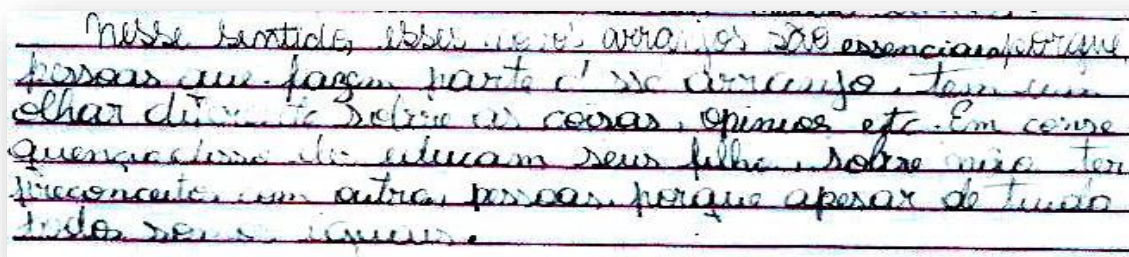 Nesse sentido, esses novos arranjos são essenciais porque
pessoas que fazem parte d'sse arranjo, tem um
olhar diferente sobre as coisas, opinios etc. Em conse
quencia disso educam seus filho, sobre não ter
preconceito com outra, pessoas, porque apesar de tudo
todos somos iguais.